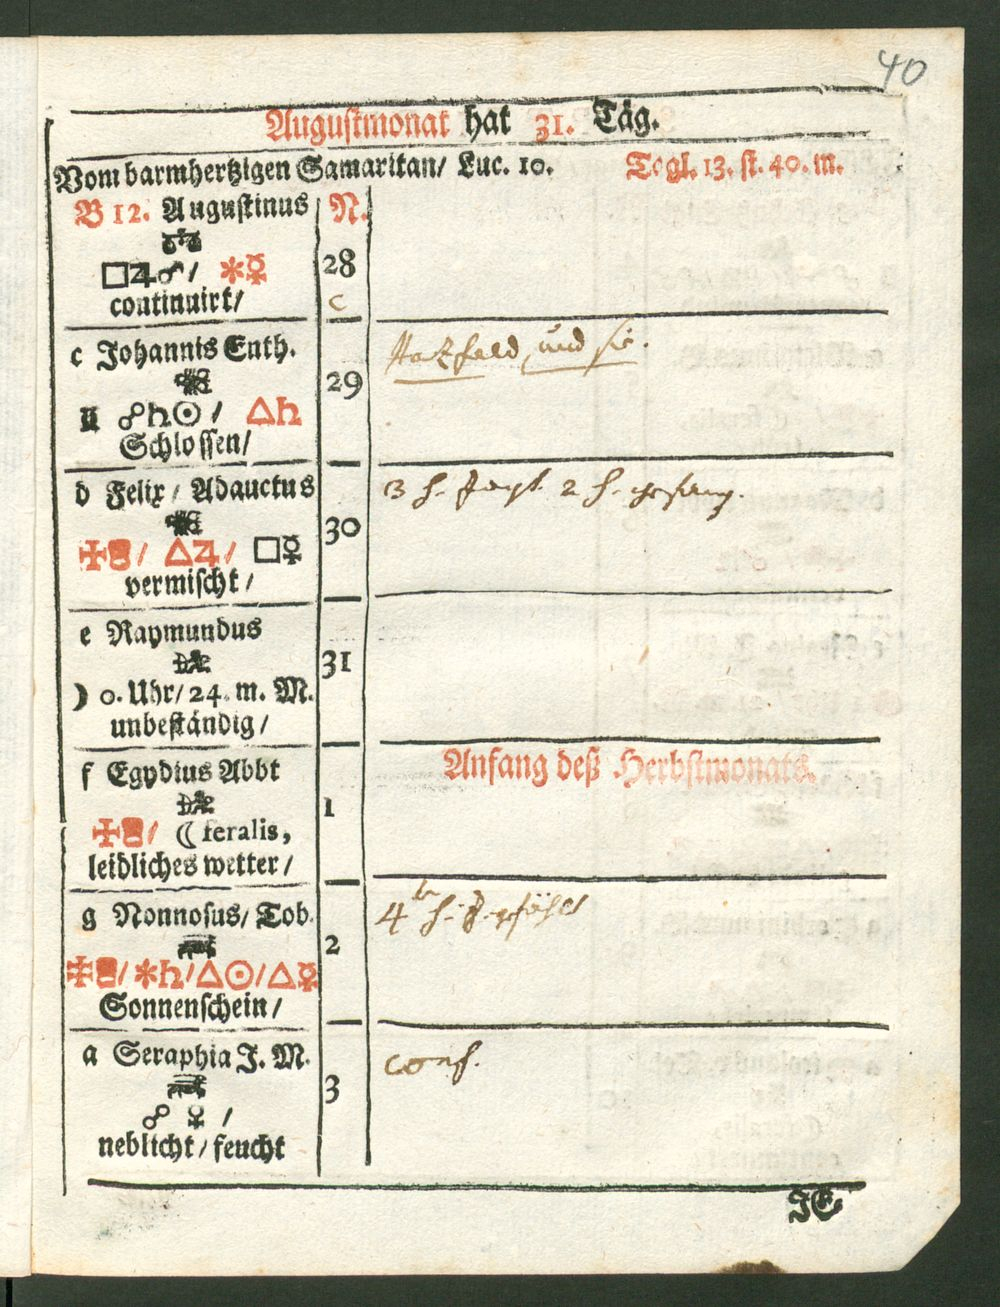 40
Augustmonat hat 31. Täg.
Vom barmhertzigen Samaritan/ Luc. 10. Togl. 13. st. 40. m.
B 12. Augustinus N.
□♃☍/ ✻☿ 28
continuirt/ c
c Johannis Enth. Hatzfeld und sie.
29
☍♄☉/ △♄
Schlossen/
d Felix/ Adauctus 3 h. 2 h.
30
✠/ △♃/ □☿
vermischt/
e Raymundus
31
☽ 0. Uhr/ 24. m. M.
unbeständig/
f Egydius Abbt Anfang deß Herbstmonats.
1
✠/ ☾ feralis,
leidliches wetter/
g Nonnosus/ Tob. 4 h.
2
✠/✻♄/△☉/△☿
Sonnenschein/
a Seraphia J. M. conf.
3
☍ ♀ /
neblicht/ feucht
JE